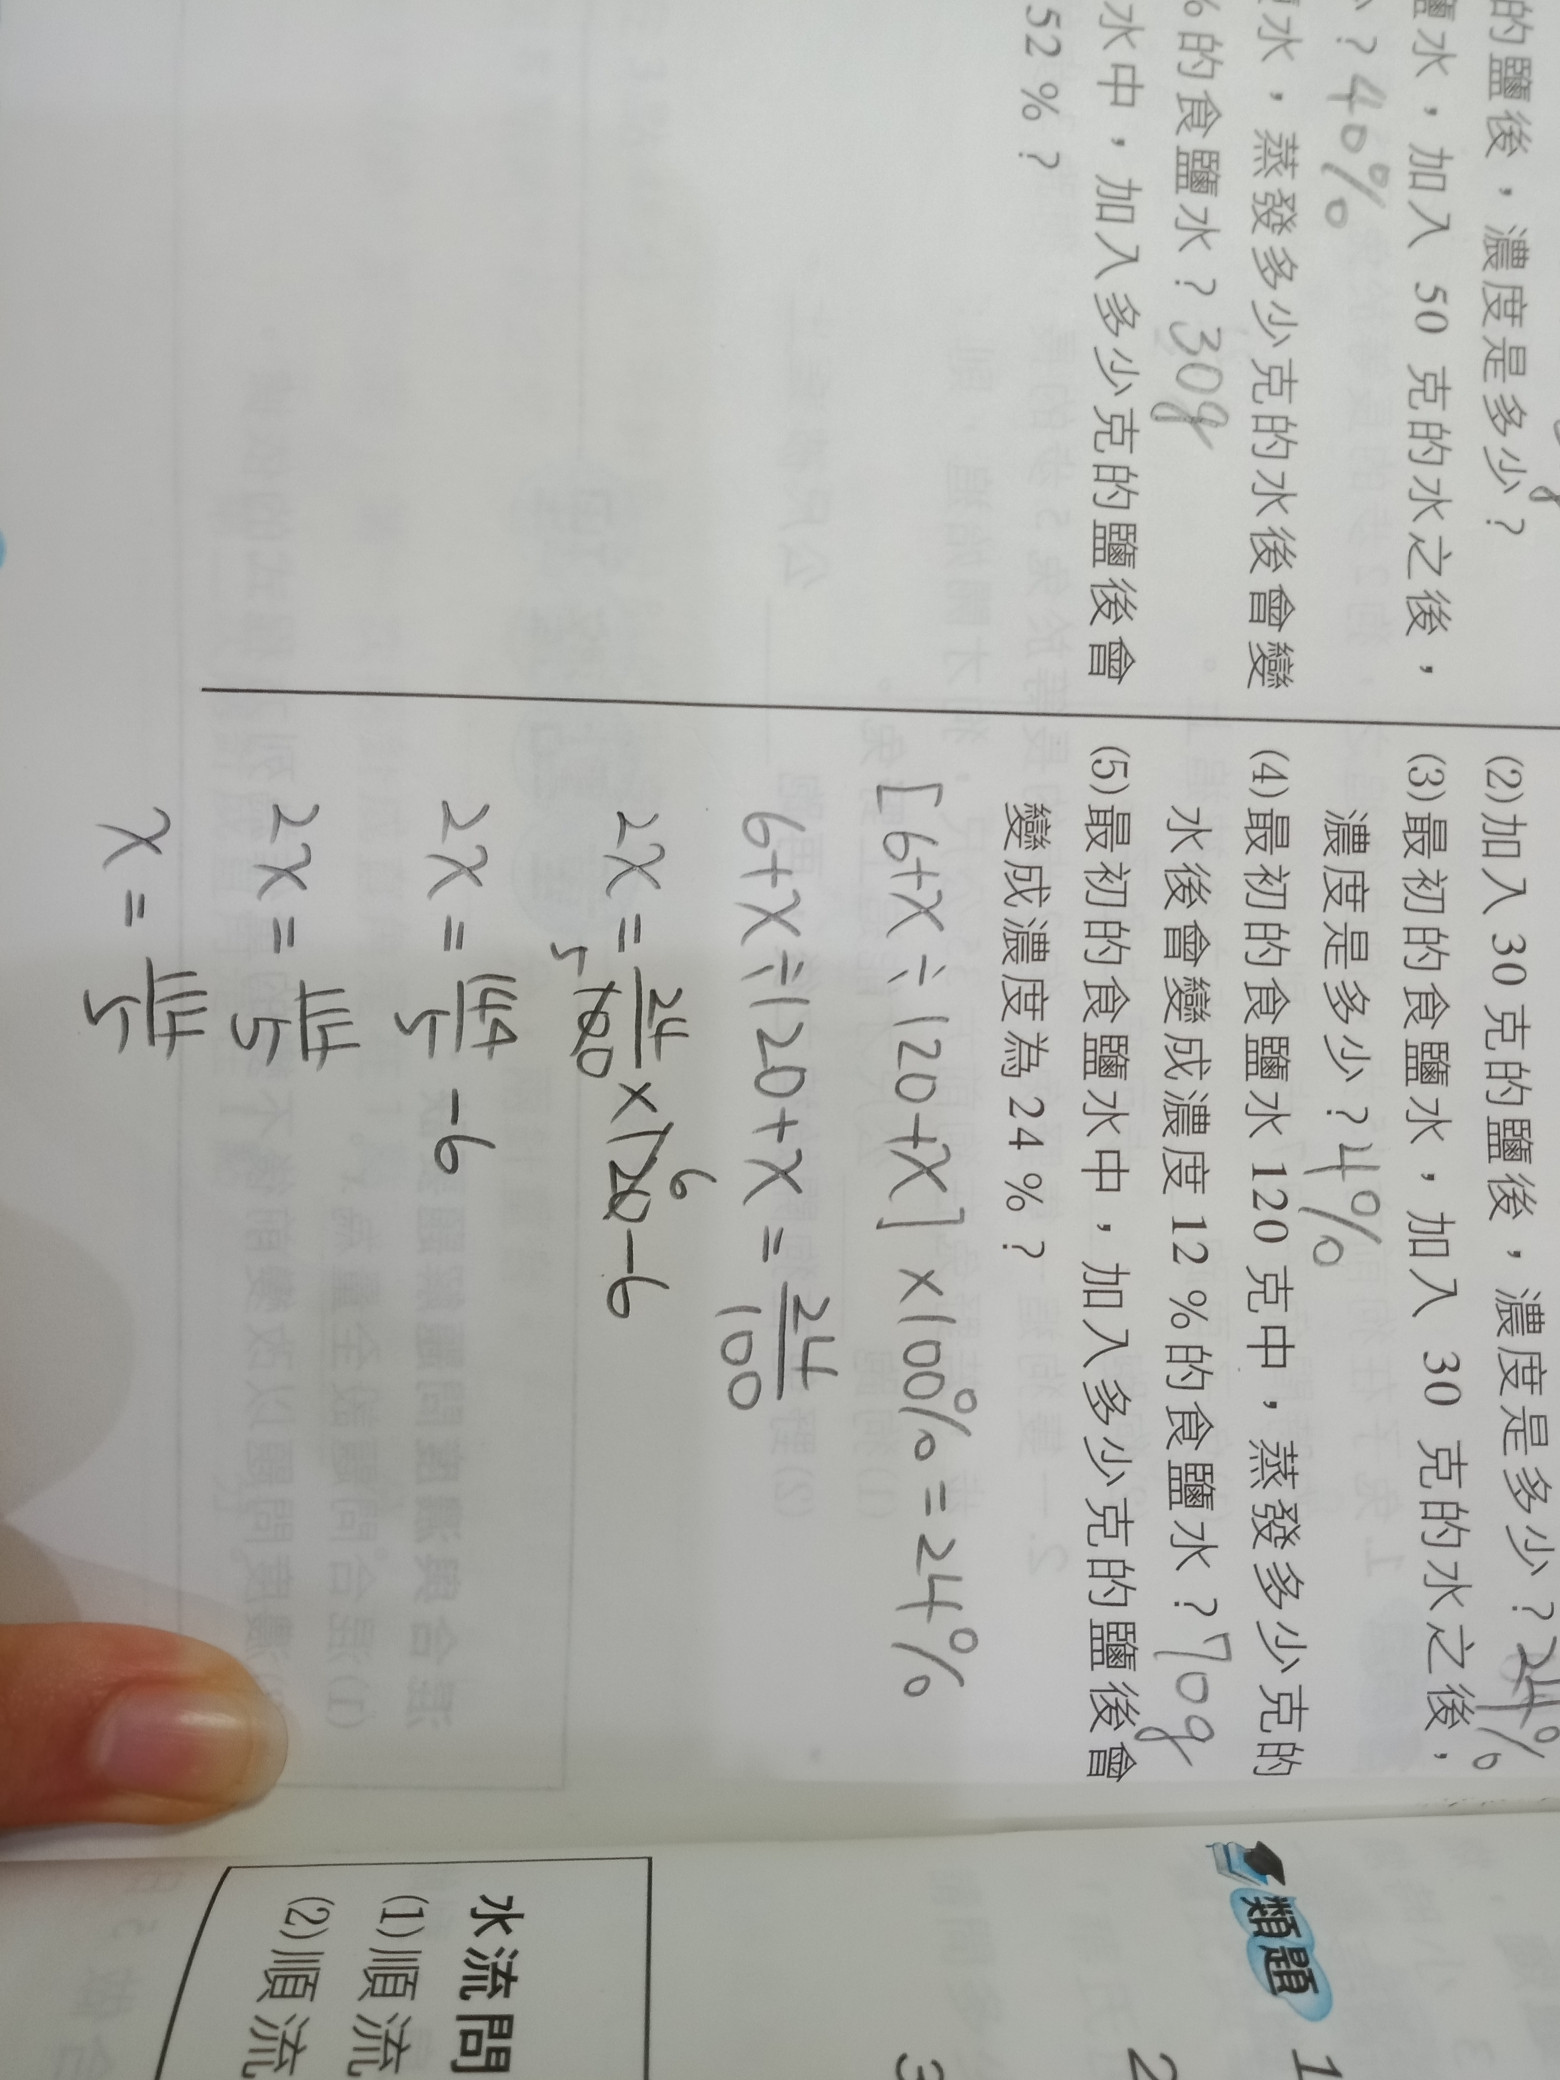 的鹽後，濃度是多少？
鹽水，加入 50 克的水之後，
？40%
水，蒸發多少克的水後會變
%的食鹽水？30g
水中，加入多少克的鹽後會
52 %？
(2)加入 30 克的鹽後，濃度是多少？24%
(3)最初的食鹽水，加入 30 克的水之後，
濃度是多少？4%
(4)最初的食鹽水 120 克中，蒸發多少克的
水後會變成濃度 12 %的食鹽水？70g
(5)最初的食鹽水中，加入多少克的鹽後會
變成濃度為 24 %？
[6+x÷120+x]×100%=24%
6+x÷120+x=24/100
2x=24/100×120-6
5 6
2x=144/5-6
2x=114/5
x=114/5
類題
1
2
3
水流問
(1)順流
(2)順流